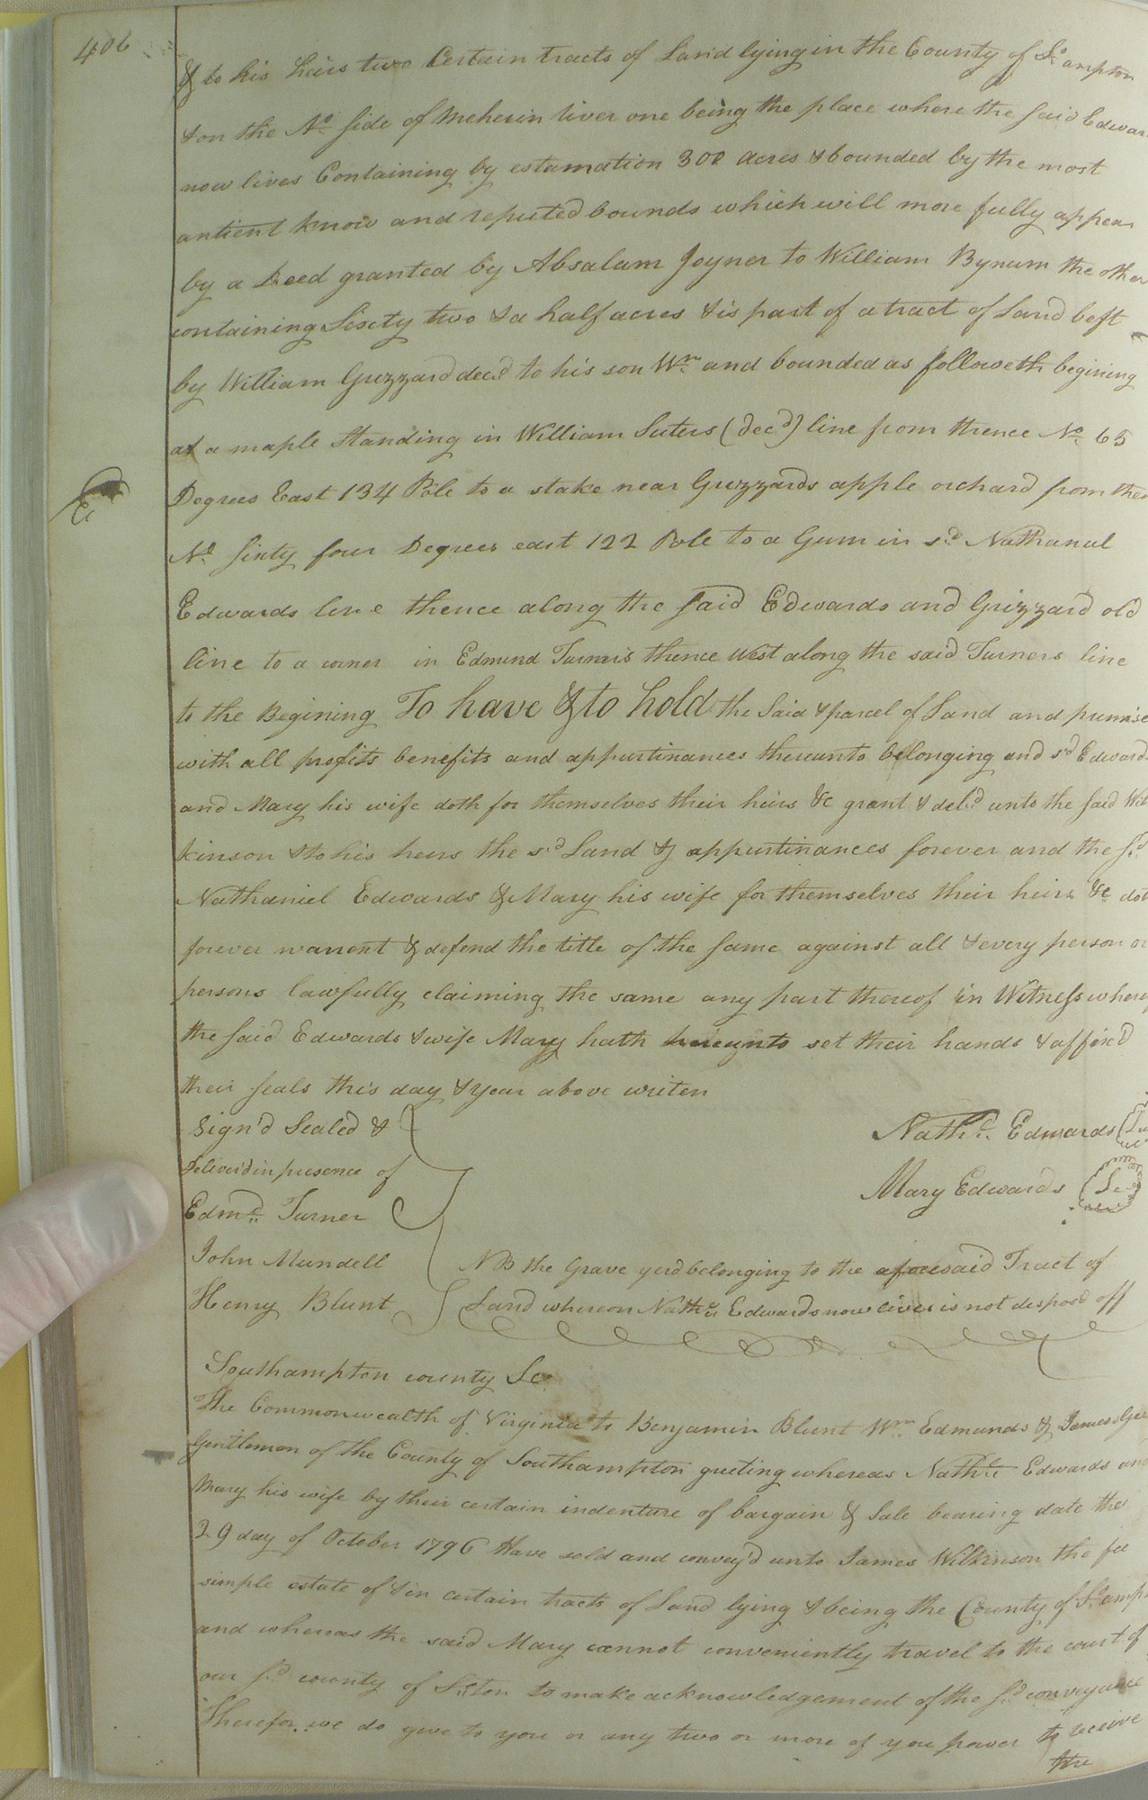 406
& to his heirs two Certain tracts of Land lying in the County of So.ampton
& on the No. side of Meherin river one being the place where the said Edwar
now lives Containing by estamation 300 acres & bounded by the most
antient know and reputed bounds which will more fully appear
by a Deed granted by Absalam Joyner to William Bynum the other
containing Sixty two & a half acres & is part of a tract of Land left
by William Grizzard decd. to his son Wm. and bounded as followeth begining
at a maple Standing in William Suters (decd) line from thence No. 65
Degrees East 134 Pole to a stake near Grizzards apple orchard from then
No. sixty four Degrees east 122 Pole to a Gum in sd. Nathanal
Edwards line thence along the said Edwards and Grizzard old
line to a corner in Edmund Turners thence West along the said Turners line
to the Begining To have & to hold the Said & parcel of Land and premise
with all profits benefits and appurtinances thereunto belonging and sd. Edward
and Mary his wife doth for themselves their heirs &c grant & deld. unto the said Wil
kinson & to his heirs the sd. Land & appurtinances forever and the sd.
Nathaniel Edwards & Mary his wife for themselves their heirs &c dot
forever warrent & defend the title of the same against all & every person or
persons lawfully claiming the same any part thereof in Witness where
the said Edwards & wife Mary hath hereunto set their hands & affix'd
their seals this day & year above writen
Sign'd Sealed &
Deliver'd in presence of
Edmd. Turner
John Mundell
Henry Blunt
Nathl. Edwards
Mary Edwards
NB the Grave yerd belonging to the aforesaid Tract of
Land whereon Nathl. Edwards now lives is not disposd off
Southampton county Sc
The Commonwealth of Virginia to Benjamin Blunt Wm. Edmunds & James
Gentlemen of the County of Southampton greeting whereas Nathl. Edwards and
Mary his wife by their certain indenture of bargain & Sale bearing date the
29 day of October 1796 Have sold and convey'd unto James Wilkinson the fee
simple estate of & in certain tracts of Land lying & being the County of So.amp
and whereas the said Mary cannot conveniently travel to the court of
our sd. county of So.ton to make acknowledgement of the sd. conveyance
Therefor we do give to you or any two or more of you power to receive
the